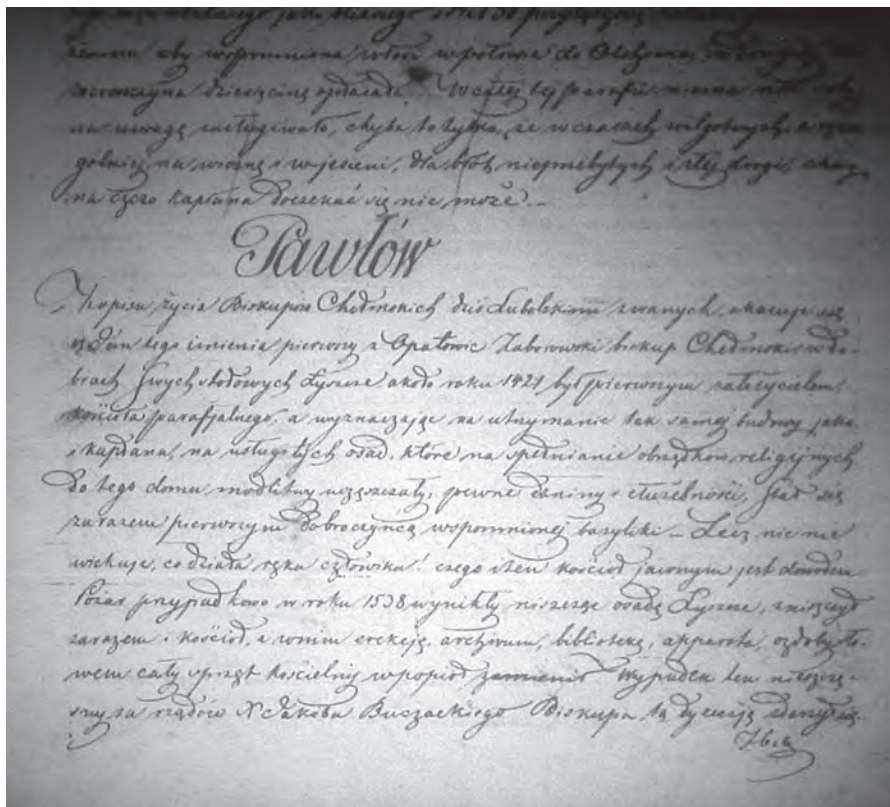 aby wspomniona włość w połowie do
dziesięcinę opłacała W całej tej parafii niema nic coby
na uwagę zasługiwało, chyba to tylko, że w czasach wilgotnych, a szcze
gólniej na wiosnę i w jesieni, dla błót niezbytych i złej drogi, chory
na czczo kapłana doczekać się nie może. —
Pawłów
Z opisu życia Biskupów Chełmskich dziś Lubelskimi zwanych, okazuje się
iż Jan tego imienia pierwszy z Opatowic Zaborowski biskup Chełmski w do-
brach swych stołowych Łyszcz około roku 1421 był pierwszym założycielem,
kościoła parafjalnego, a wyznaczając na utrzymanie tak samej budowy jako
i kapłana, na usługi tych osad, które na spełnianie obrządków religijnych
do tego domu modlitwy uczęszczały, pewne daniny i służebności, stał się
zarazem pierwszym dobroczyńcą wspomnionej bazyliki — Lecz nic nie
wiekuje, co działa ręka człowieka! czego i ten kościół jawnym jest dowodem
Pożar przypadkowo w roku 1538 wynikły niszcząc osadę Łyszcz, zniszczył
zarazem i kościół, a w nim erekcję, archiwum, bibliotekę, apparata, ozdoby sło-
wem cały sprzęt kościelny w popiół zamienił Wypadek ten nieszczę-
sny za rządów X Jakóba Buczackiego Biskupa tą dyecezją zdarzył się.